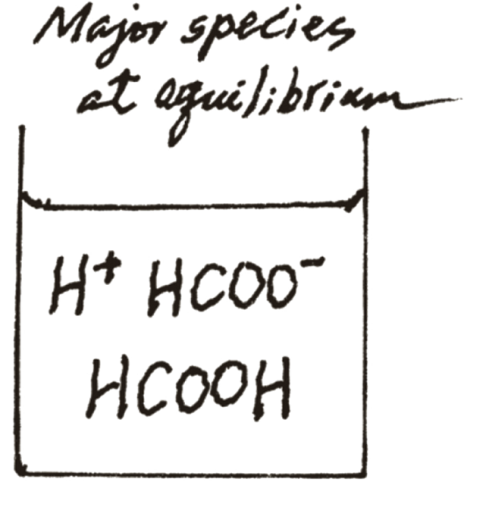 Major species
at equilibrium
H⁺ HCOO⁻
HCOOH